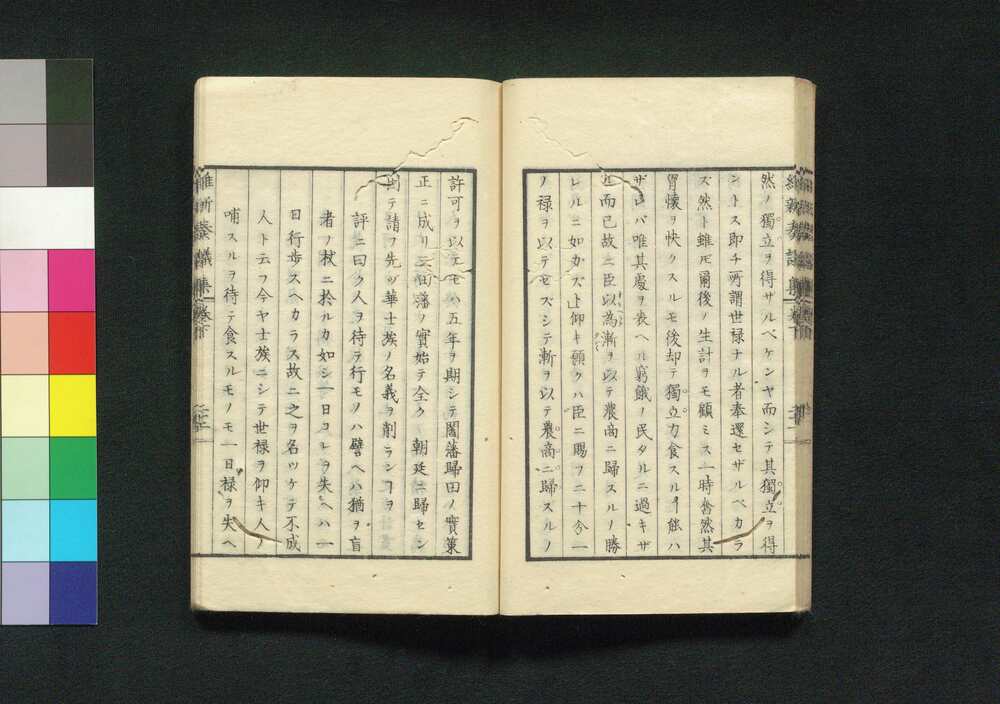 然ノ獨立ヲ得ザルベケンヤ而シテ其獨立ヲ得
ントス即チ所謂世禄ナル者奉還セザルベカラ
ズ然ト雖𪜈爾後ノ生計ヲモ顧ミス一時沓然其
胷懐ヲ快クスルモ後却テ獨立力食スルヿ能ハ
ザレバ唯其處ヲ喪ヘル窮餓ノ民タルニ過キザ
ル而已故ニ臣以為漸ヲ以テ農商ニ歸スルノ勝
レルニ如カズト仰キ願クハ臣ニ賜フニ十分一
ノ禄ヲ以テセズシテ漸ヲ以テ農商ニ歸スルノ
許可ヲ以テセハ五年ヲ期シテ闔藩歸田ノ實策
正ニ成リ云々藩ノ實始テ全ク 朝廷ニ歸セン
因テ請フ先ヅ華士族ノ名義ヲ削ランヿヲ
評ニ曰ク人ヲ待テ行モノハ譬ヘハ猶ヲ盲
者ノ杖ニ於ルカ如シ一日コレヲ失ヘハ一
日行歩スヘカラス故ニ之ヲ名ツケテ不成
人ト云フ今ヤ士族ニシテ世禄ヲ仰キ人ノ
哺スルヲ待テ食スルモノモ一日禄ヲ失ヘ
維新奏議集 巻下